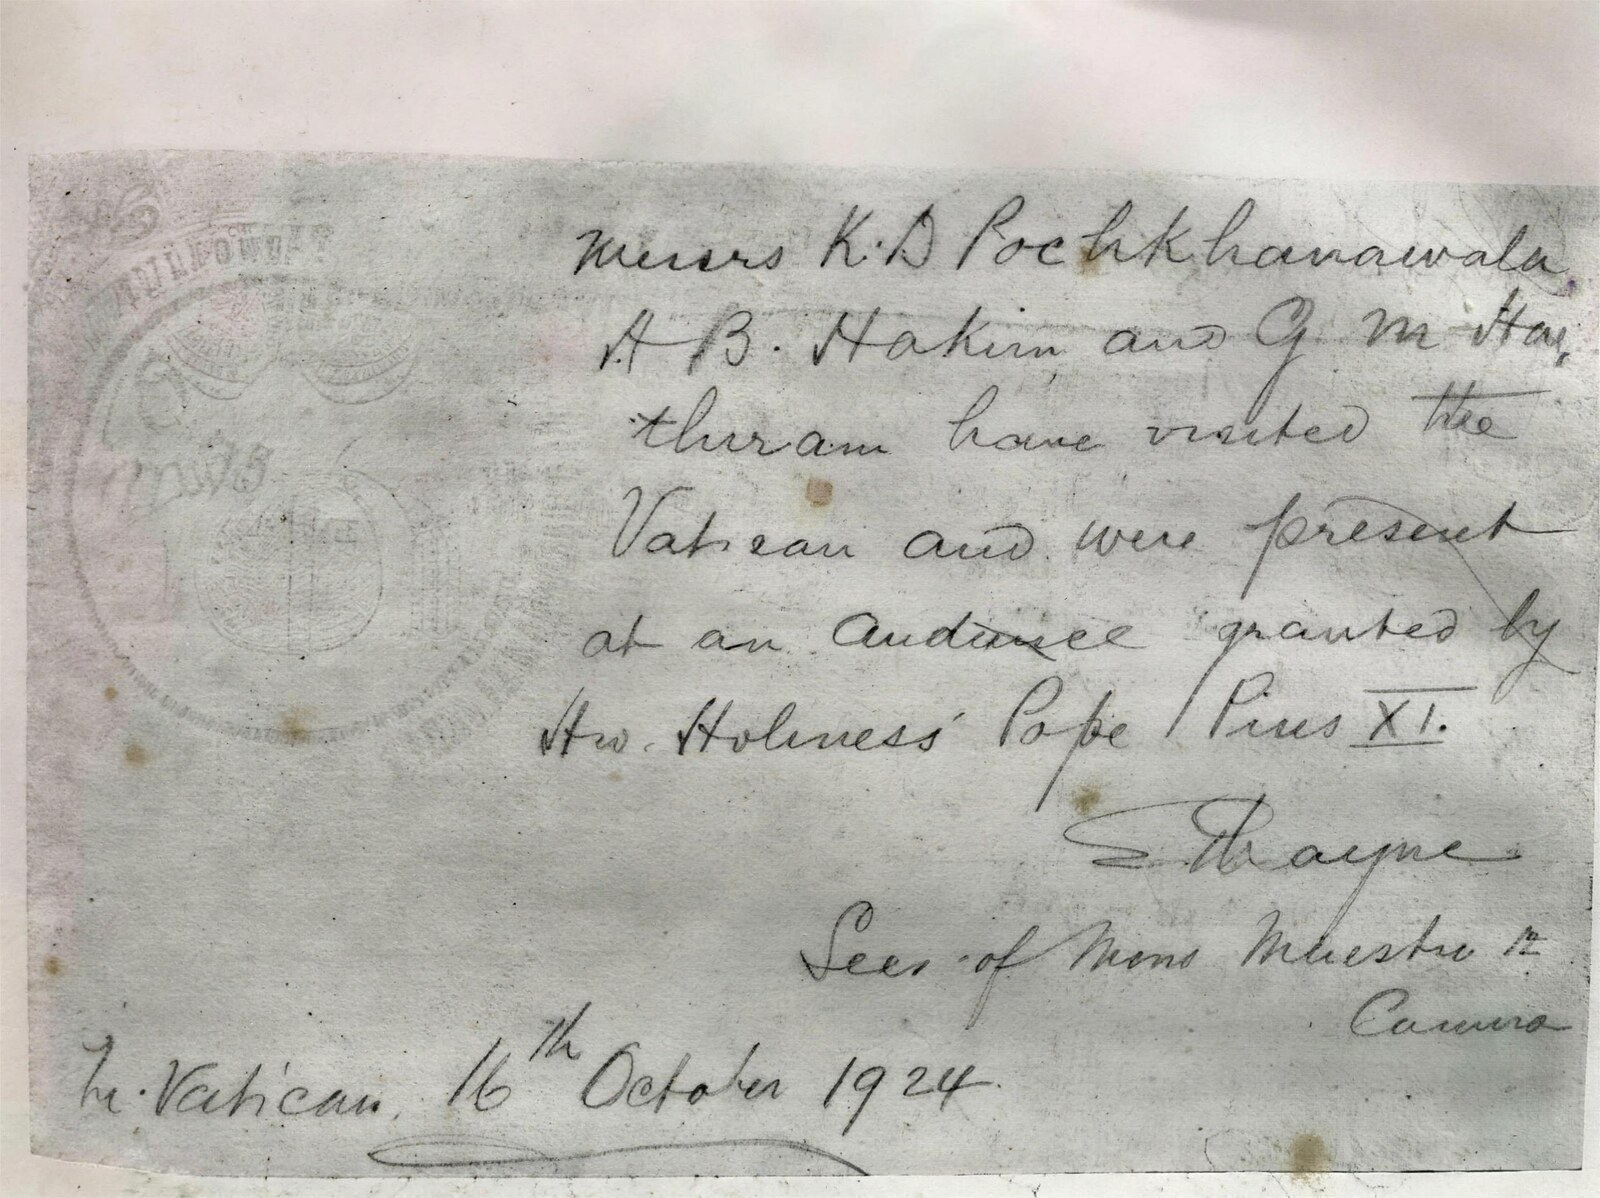 Messrs K. D Pochkhanawala,
A B. Hakim and G M Hay,
thuram have visited the
Vatican and were present
at an Audience granted by
His Holiness Pope Pius XI.
of Mons Maestro
Camera
Vatican, 16th October 1924